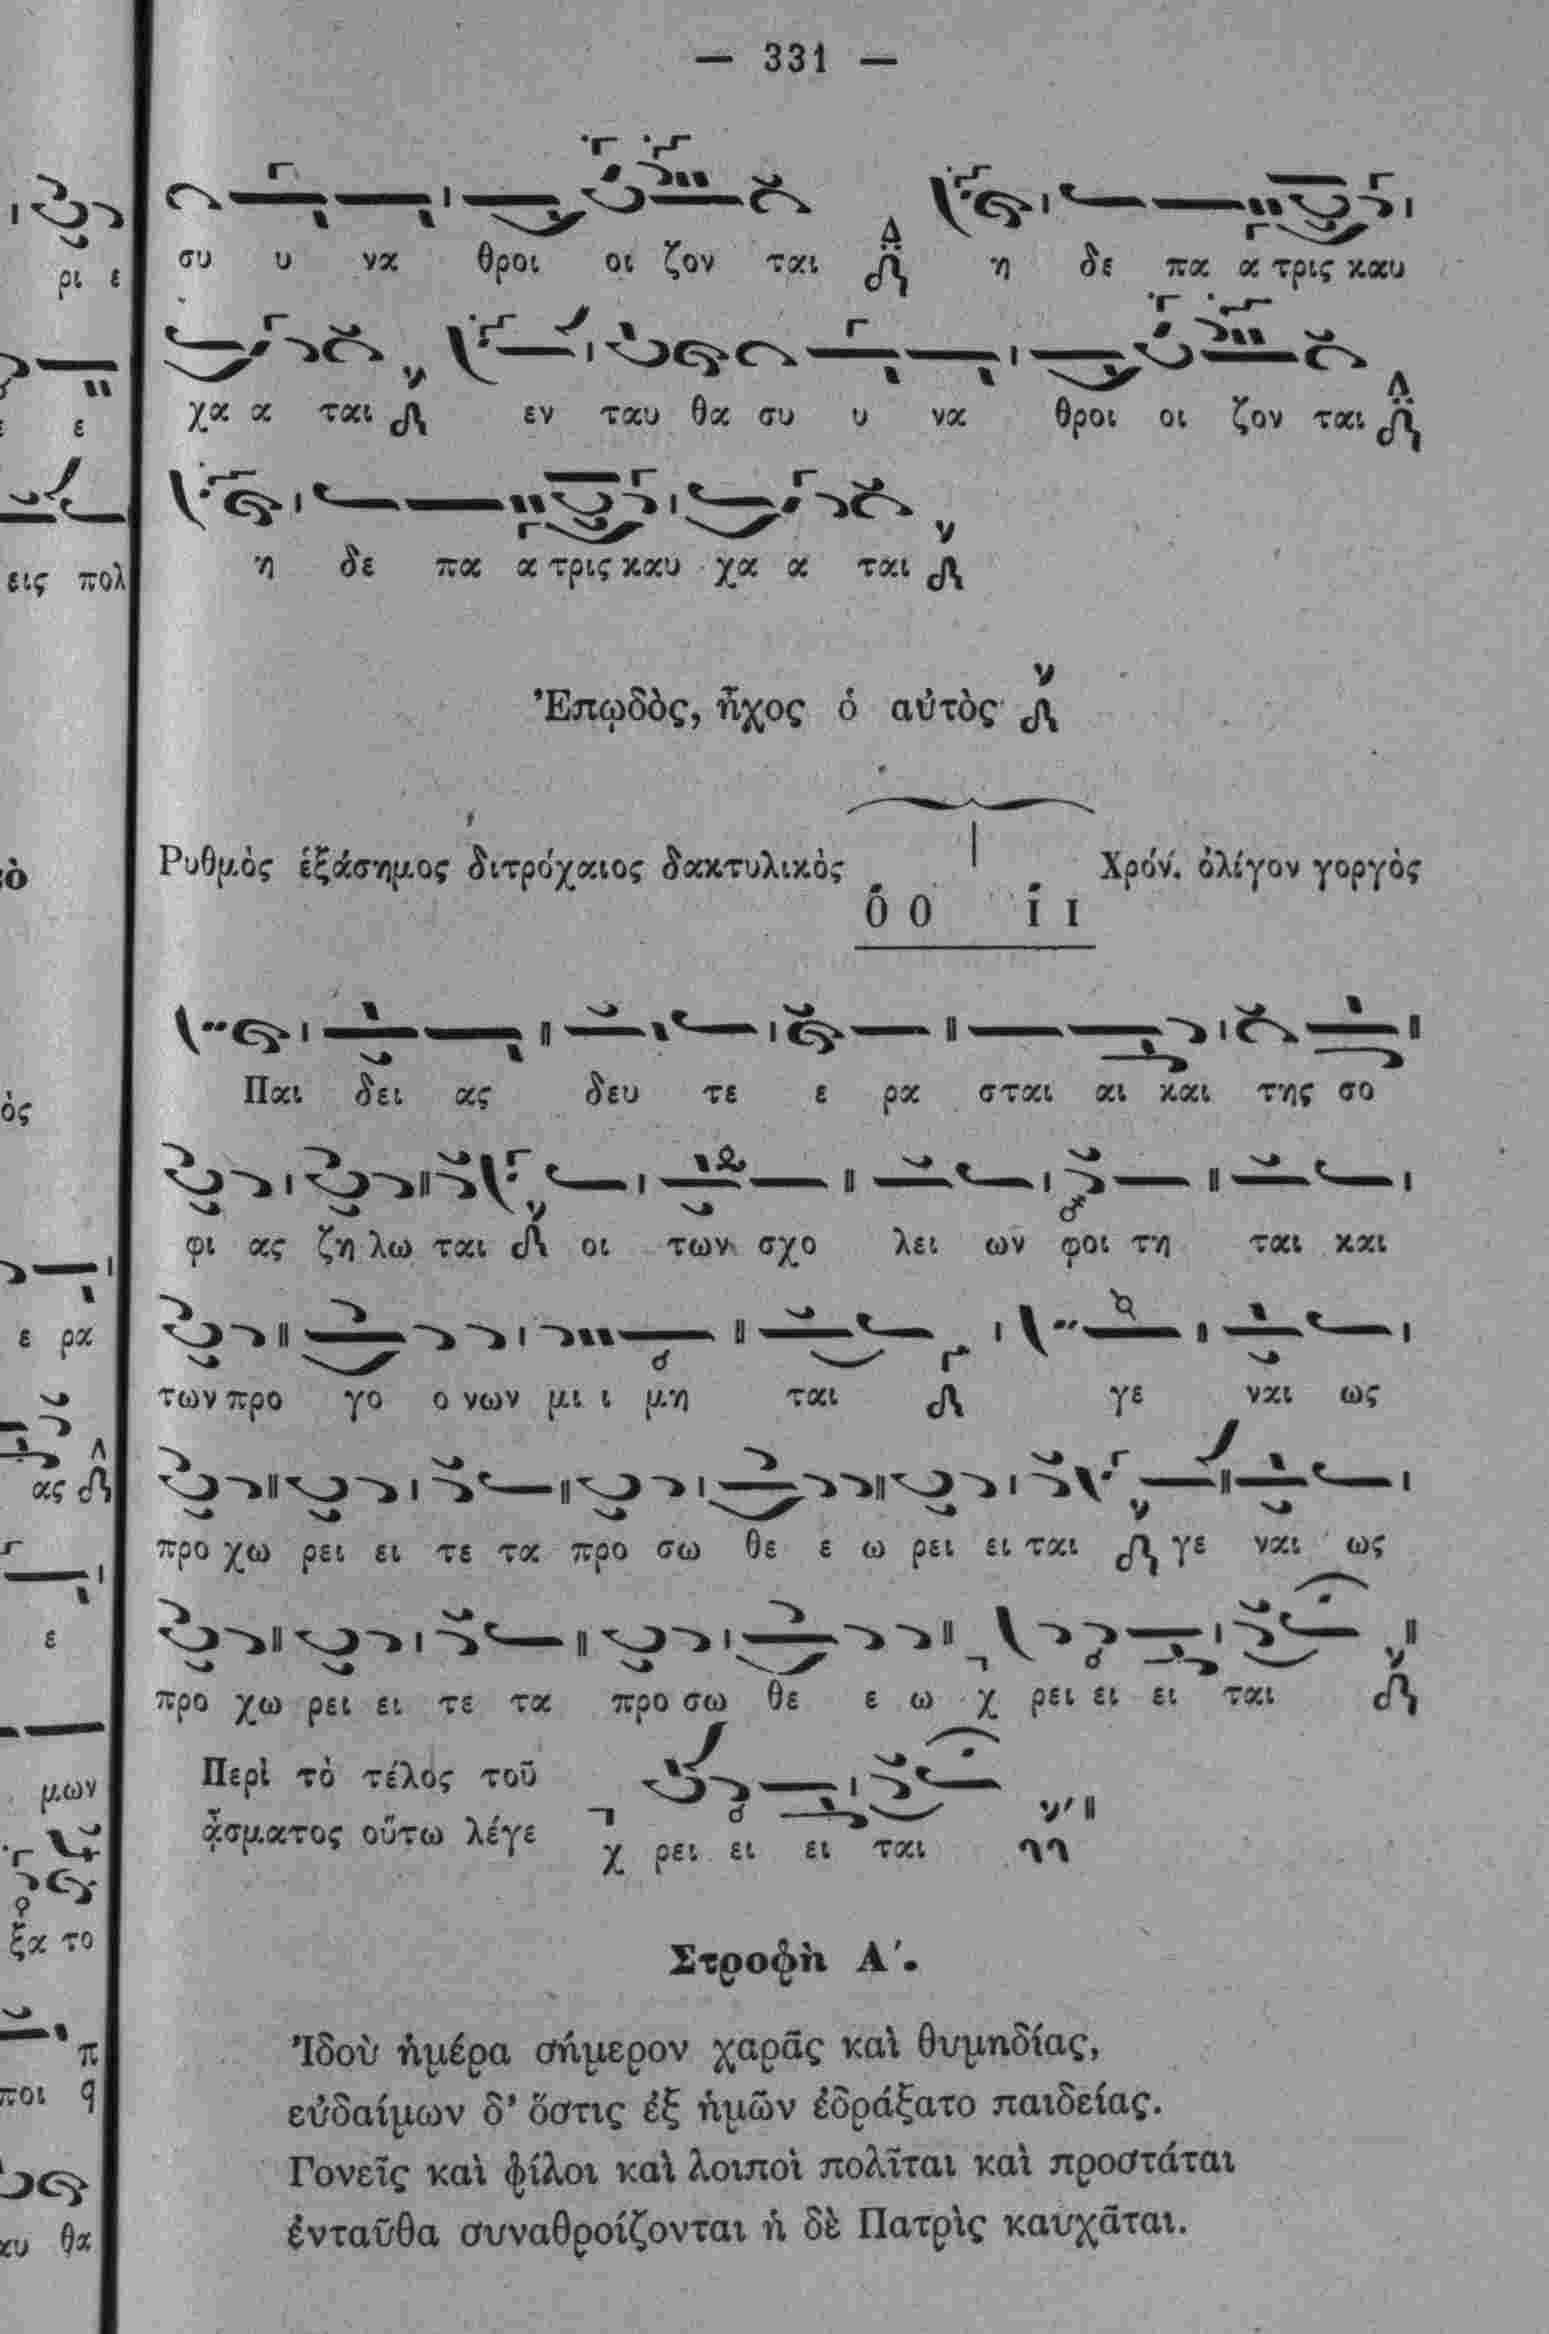 — 331 —
συ υ να θροι οι ζον ται η δε πα α τρις καυ
χα α ται εν ταυ θα συ υ να θροι οι ζον ται
η δε πα α τρις καυ χα α ται
Ἐπῳδὸς, ἦχος ὁ αὐτὸς
Ρυθμὸς ἑξάσημος διτρόχαιος δακτυλικὸς Χρόν. ὀλίγον γοργὸς
Ο Ο Ι Ι
Παι δει ας δευ τε ε ρα σται αι και της σο
φι ας ζη λω ται οι των σχο λει ων φοι τη ται και
των προ γο ο νων μι ι μη ται γε ναι ως
προ χω ρει ει τε τα προ σω θε ε ω ρει ει ται γε ναι ως
προ χω ρει ει τε τα προ σω θε ε ω χ ρει ει ει ται
Περὶ τὸ τέλος τοῦ
ᾄσματος οὕτω λέγε χ ρει ει ει ται
Στροφὴ Α΄.
Ἰδοὺ ἡμέρα σήμερον χαρᾶς καὶ θυμηδίας,
εὐδαίμων δ' ὅστις ἐξ ἡμῶν ἐδράξατο παιδείας.
Γονεῖς καὶ φίλοι καὶ λοιποὶ πολῖται καὶ προστάται
ἐνταῦθα συναθροίζονται ἡ δὲ Πατρὶς καυχᾶται.